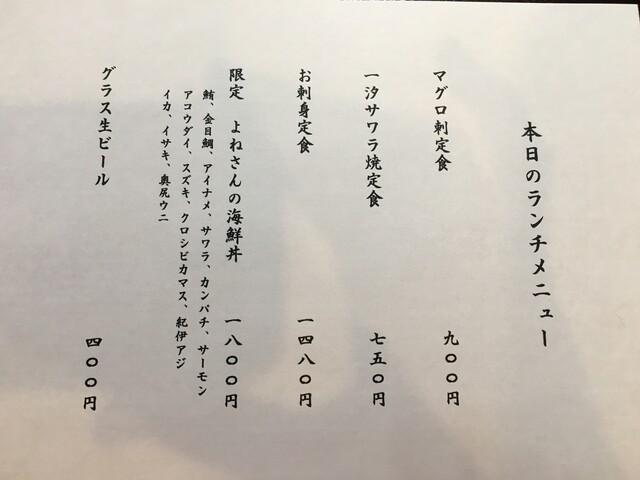 本日のランチメニュー
マグロ刺定食 九〇〇円
一汐サワラ焼定食 七五〇円
お刺身定食 一四八〇円
限定 よねさんの海鮮丼 一八〇〇円
鮪、金目鯛、アイナメ、サワラ、カンパチ、サーモン
アコウダイ、スズキ、クロシビカマス、紀伊アジ
イカ、イサキ、奥尻ウニ
グラス生ビール 四〇〇円